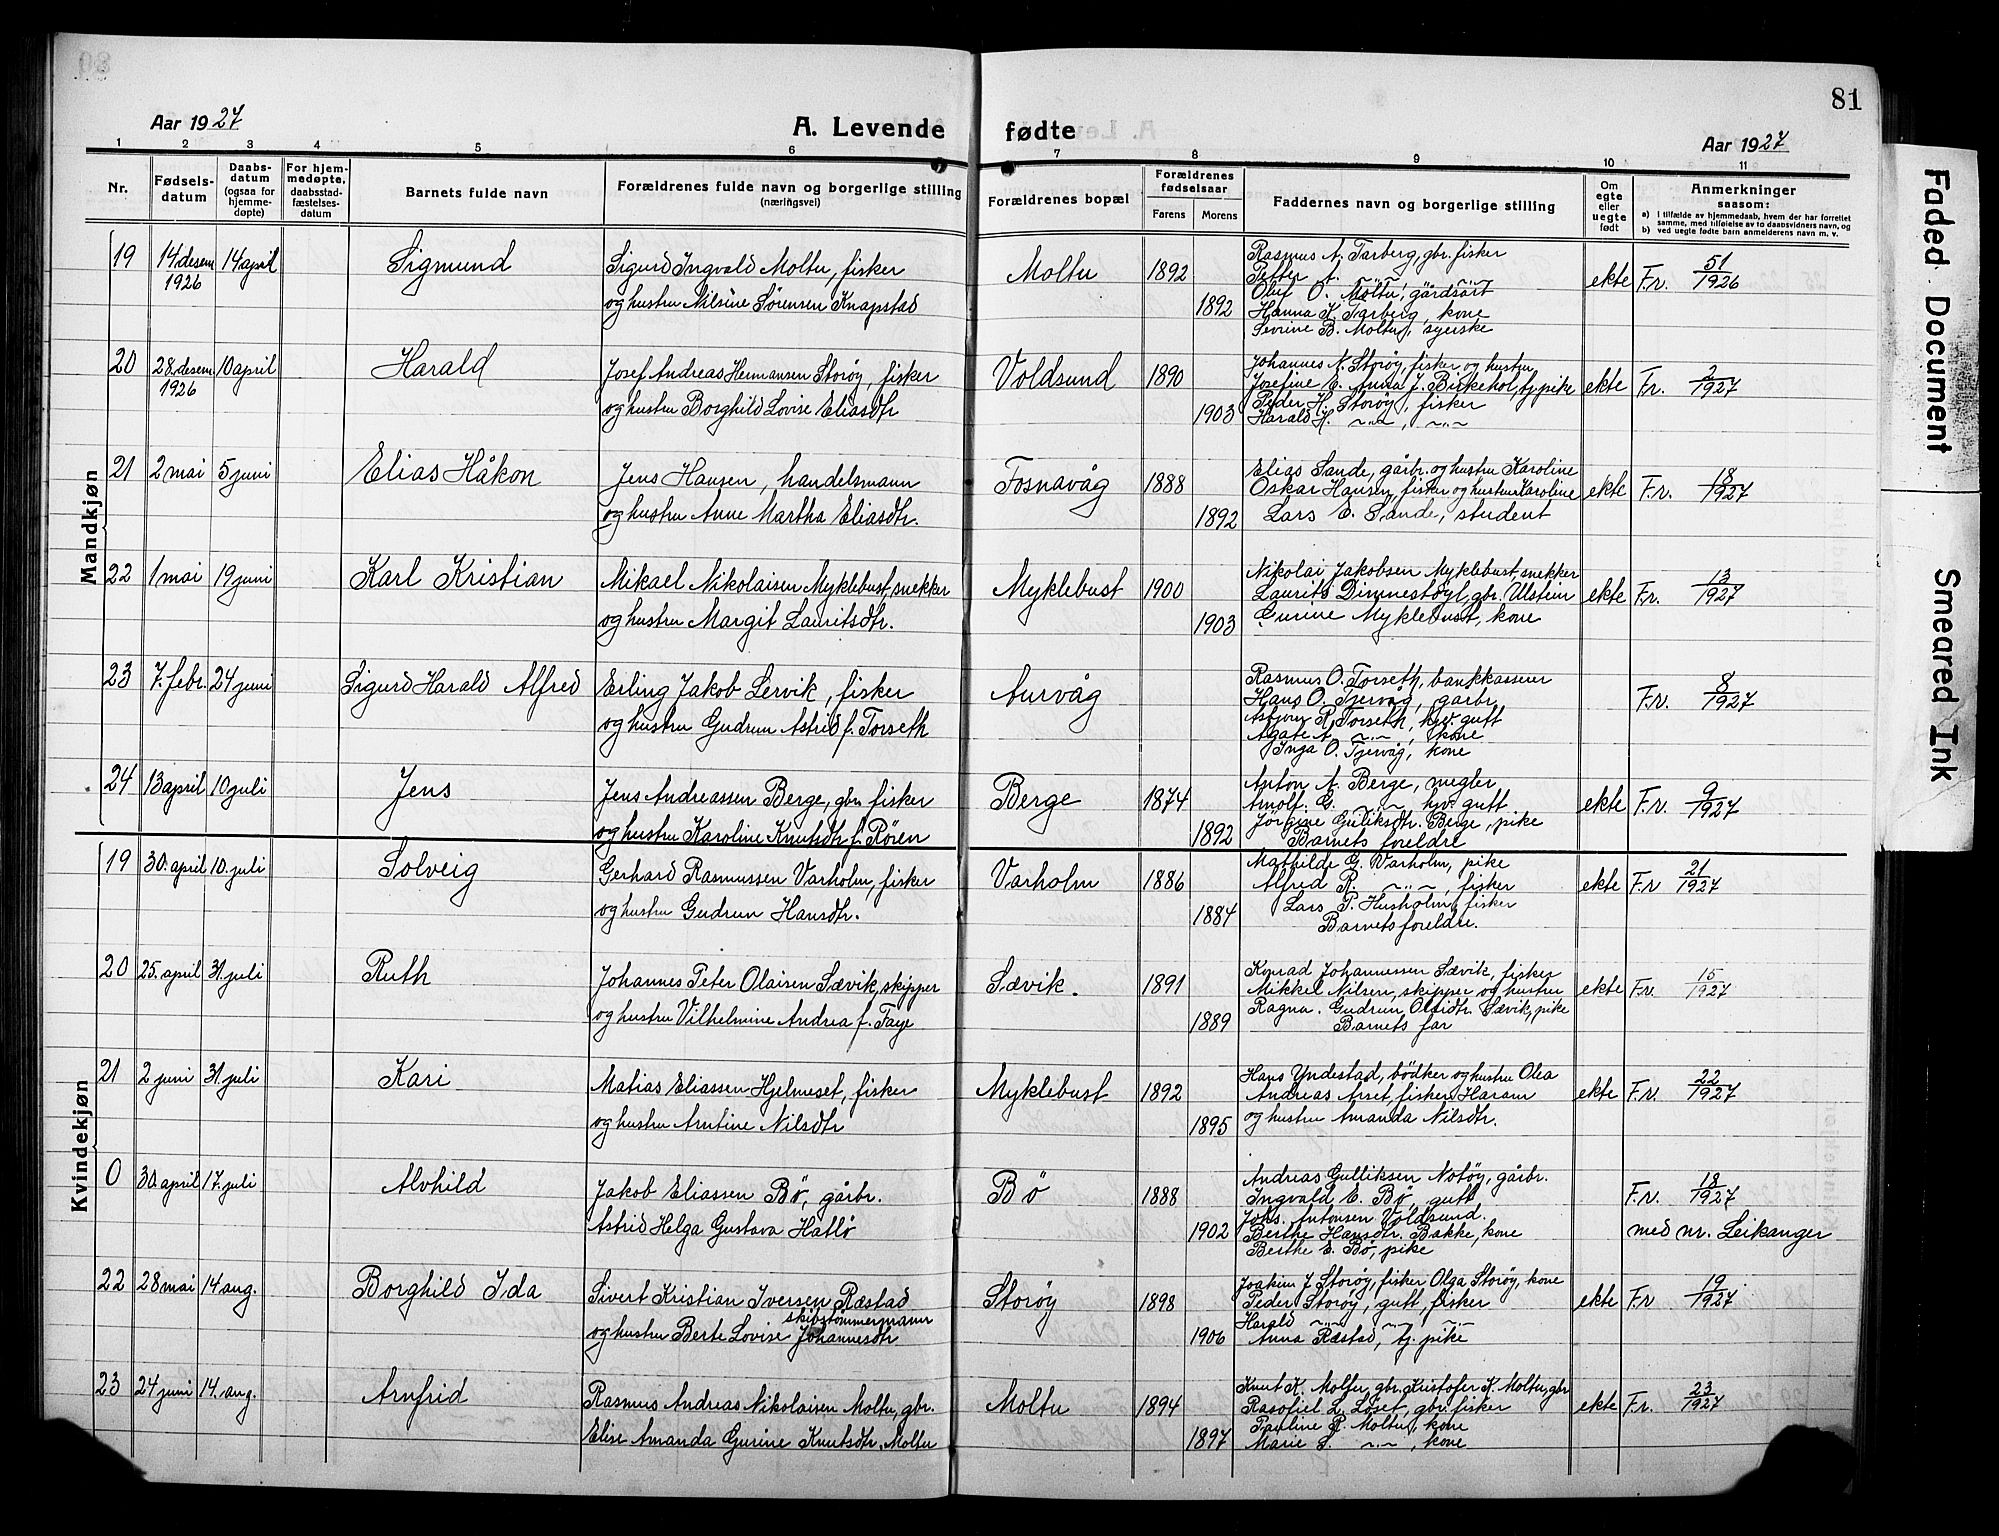 81
Aar 1927
A. Levende fødte
Aar 1927
1 2 3 4 5 6 7 8 9 10 11
Nr.
Fødsels-
datum
Daabs-
datum
(ogsaa for
hjemme-
døpte)
For hjem-
medøpte,
daabsstad-
fæstelses-
datum
Barnets fulde navn
Forældrenes fulde navn og borgerlige stilling
(næringsvei)
Forældrenes bopæl
Forældrenes
fødselsaar
Farens Morens
Faddernes navn og borgerlige stilling
Om
egte
eller
uegte
født
Anmerkninger
saasom:
a) I tilfælde av hjemmedaab, hvem der har forrettet
samme, med tilføielse av to daabsvidners navn, og
b) ved uegte fødte barn anmelderens navn m. v.
Mandkjøn
19 14 desem 1926 14 april Sigmund
Sigurd Ingvald Moltu, fisker
og hustru Nilsine Sørensen Knapstad
Moltu 1892 1892
Rasmus A. Tarberg, gbr. fisker
Petter A. -"-, -"-
Oluf O. Moltu, gårdsarb
Hanna K. Tarberg, kone
Sevrine B. Moltu, syerske
ekte F.r. 51/1926
20 28. desem 1926 10 april Harald
Josef Andreas Hermansen Storøy, fisker
og hustru Borghild Lovise Eliasdtr
Voldsund 1890 1903
Johannes N. Storøy, fisker og hustru
Josefine E. Anna J. Birkehol, tj. pike
Peder H. Storøy, fisker
Harald H. -"-, -"-
ekte Fr. 2/1927
21 2 mai 5 juni Elias Håkon
Jens Hansen, handelsmann
og hustru Anne Martha Eliasdtr.
Fosnavåg 1888 1892
Elias Sande, gårbr. og hustru Karoline
Oskar Hansen, fisker og hustru Karoline
Lars E. Sande, student
ekte F.r. 18/1927
22 1 mai 19 juni Karl Kristian
Mikael Nikolaisen Myklebust, snekker
og hustru Margit Lauritsdtr.
Myklebust 1900 1903
Nikolai Jakobsen Myklebust, snekker
Laurits Dimnestøyl, gbr. Ulstein
Gurine Myklebust, kone
ekte F.r. 13/1927
23 7. febr. 24 juni Sigurd Harald Alfred
Erling Jakob Lervik, fisker
og hustru Gudrun Astrid f. Torseth
Aurvåg
Rasmus O. Torseth, bankkasserer
Hans O. Tjervåg, gårbr.
Asbjørn R. Torseth, hjv. gutt
Agate A. -"-, kone
Inga O. Tjervåg, kone
F.r. 8/1927
24 13 april 10 juli Jens
Jens Andreassen Berge, gbr. fisker
og hustru Karoline Knutsdtr f. Røren
Berge 1874 1892
Anton A. Berge, megler
Arnolf. G. -"- hjv. gutt
Jørgine Gulliksdtr. Berge, pike
Barnets foreldre
ekte F.r. 9/1927
Kvindekjøn
19 30. april 10. juli Solveig
Gerhard Rasmussen Varholm, fisker
og hustru Gudrun Hansdtr.
Varholm 1886 1884
Mathilde G. Varholm, pike
Alfred R. -"-, fisker
Lars P. Husholm, fisker
Barnets foreldre.
ekte F.r 21/1927
20 25. april 31. juli Ruth
Johannes Peter Olaisen Sævik, skipper
og hustru Vilhelmine Andrea f. Faye
Sævik. 1891 1889
Konrad Johannessen Sævik, fisker
Mikkel Nilsen, skipper og hustru
Ragna. Gudrun Olaidtr. Sævik, pike
Barnets far
ekte F.r. 15/1927
21 2 juni 31. juli Kari
Matias Eliassen Hjelmeset, fisker
og hustru Arntine Nilsdtr
Myklebust 1892 1895
Hans Yndestad, bødker og hustru Olea
Andreas Arset, fisker, Haram
og hustru Amanda Nilsdtr.
ekte F.r. 22/1927
0 30. april 17. juli Alvhild
Jakob Eliassen Bø, gårbr.
Astrid Helga Gustava Hatlø
Bø 1888 1902
Andreas Gulliksen Notøy, gårbr.
Ingvald E. Bø, gutt
Johs. Antonsen Voldsund.
Berthe Hansdtr. Bakke, kone
Berthe E. Bø, pike
F.r. 18/1927
med nr. Leikanger
22 28 mai 14 aug. Borghild Ida
Sivert Kristian Iversen Ræstad
skibstømmermann
og hustru Berte Lovise Johannesdtr
Storøy 1898 1906
Joakim J. Storøy, fisker Olga Storøy, kone
Peder Storøy, gutt, fisker
Harald -"- -"- -"-
Anna Ræstad, tj. pike
ekte F.r 19/1927
23 24 juni 14. aug. Arnfrid
Rasmus Andreas Nikolaisen Moltu, gbr.
Elise Amanda Gurine Knutsdtr. Moltu
Moltu 1894 1897
Knut K. Moltu, gbr. Kristofer K. Moltu, gbr
Rasofiel L. Løset, gbr. fisker
Pauline R. Moltu, kone
Marie S. -"-, kone
ekte F.r. 23/1927
Faded Document
Smeared Ink